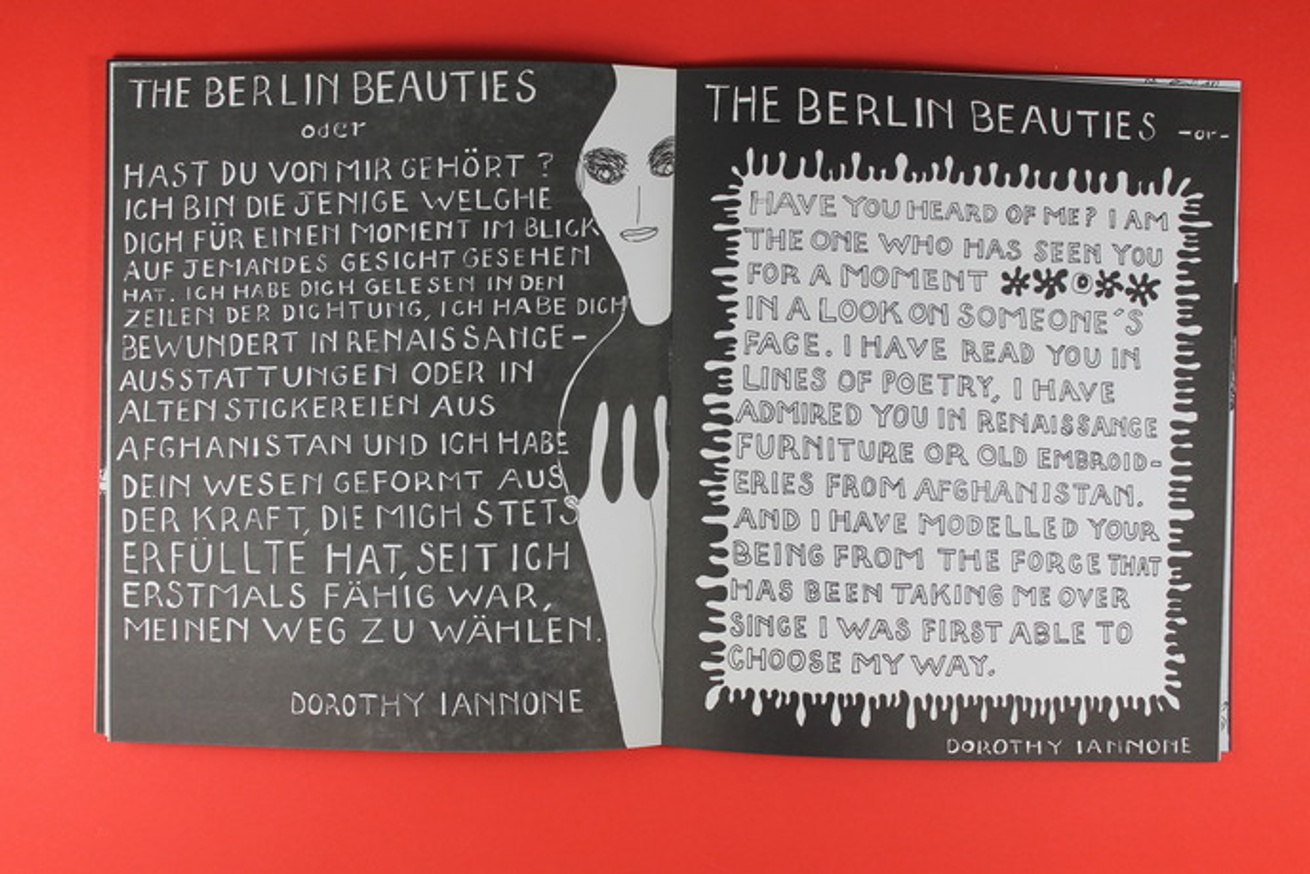 THE BERLIN BEAUTIES
oder
HAST DU VON MIR GEHÖRT ?
ICH BIN DIE JENIGE WELCHE
DICH FÜR EINEN MOMENT IM BLICK
AUF JEMANDES GESICHT GESEHEN
HAT. ICH HABE DICH GELESEN IN DEN
ZEILEN DER DICHTUNG, ICH HABE DICH
BEWUNDERT IN RENAISSANCE-
AUSSTATTUNGEN ODER IN
ALTEN STICKEREIEN AUS
AFGHANISTAN UND ICH HABE
DEIN WESEN GEFORMT AUS
DER KRAFT, DIE MICH STETS
ERFÜLLTE HAT, SEIT ICH
ERSTMALS FÄHIG WAR,
MEINEN WEG ZU WÄHLEN.
DOROTHY IANNONE
THE BERLIN BEAUTIES -or-
HAVE YOU HEARD OF ME? I AM
THE ONE WHO HAS SEEN YOU
FOR A MOMENT
IN A LOOK ON SOMEONE'S
FACE. I HAVE READ YOU IN
LINES OF POETRY, I HAVE
ADMIRED YOU IN RENAISSANCE
FURNITURE OR OLD EMBROID-
ERIES FROM AFGHANISTAN.
AND I HAVE MODELLED YOUR
BEING FROM THE FORCE THAT
HAS BEEN TAKING ME OVER
SINCE I WAS FIRST ABLE TO
CHOOSE MY WAY.
DOROTHY IANNONE